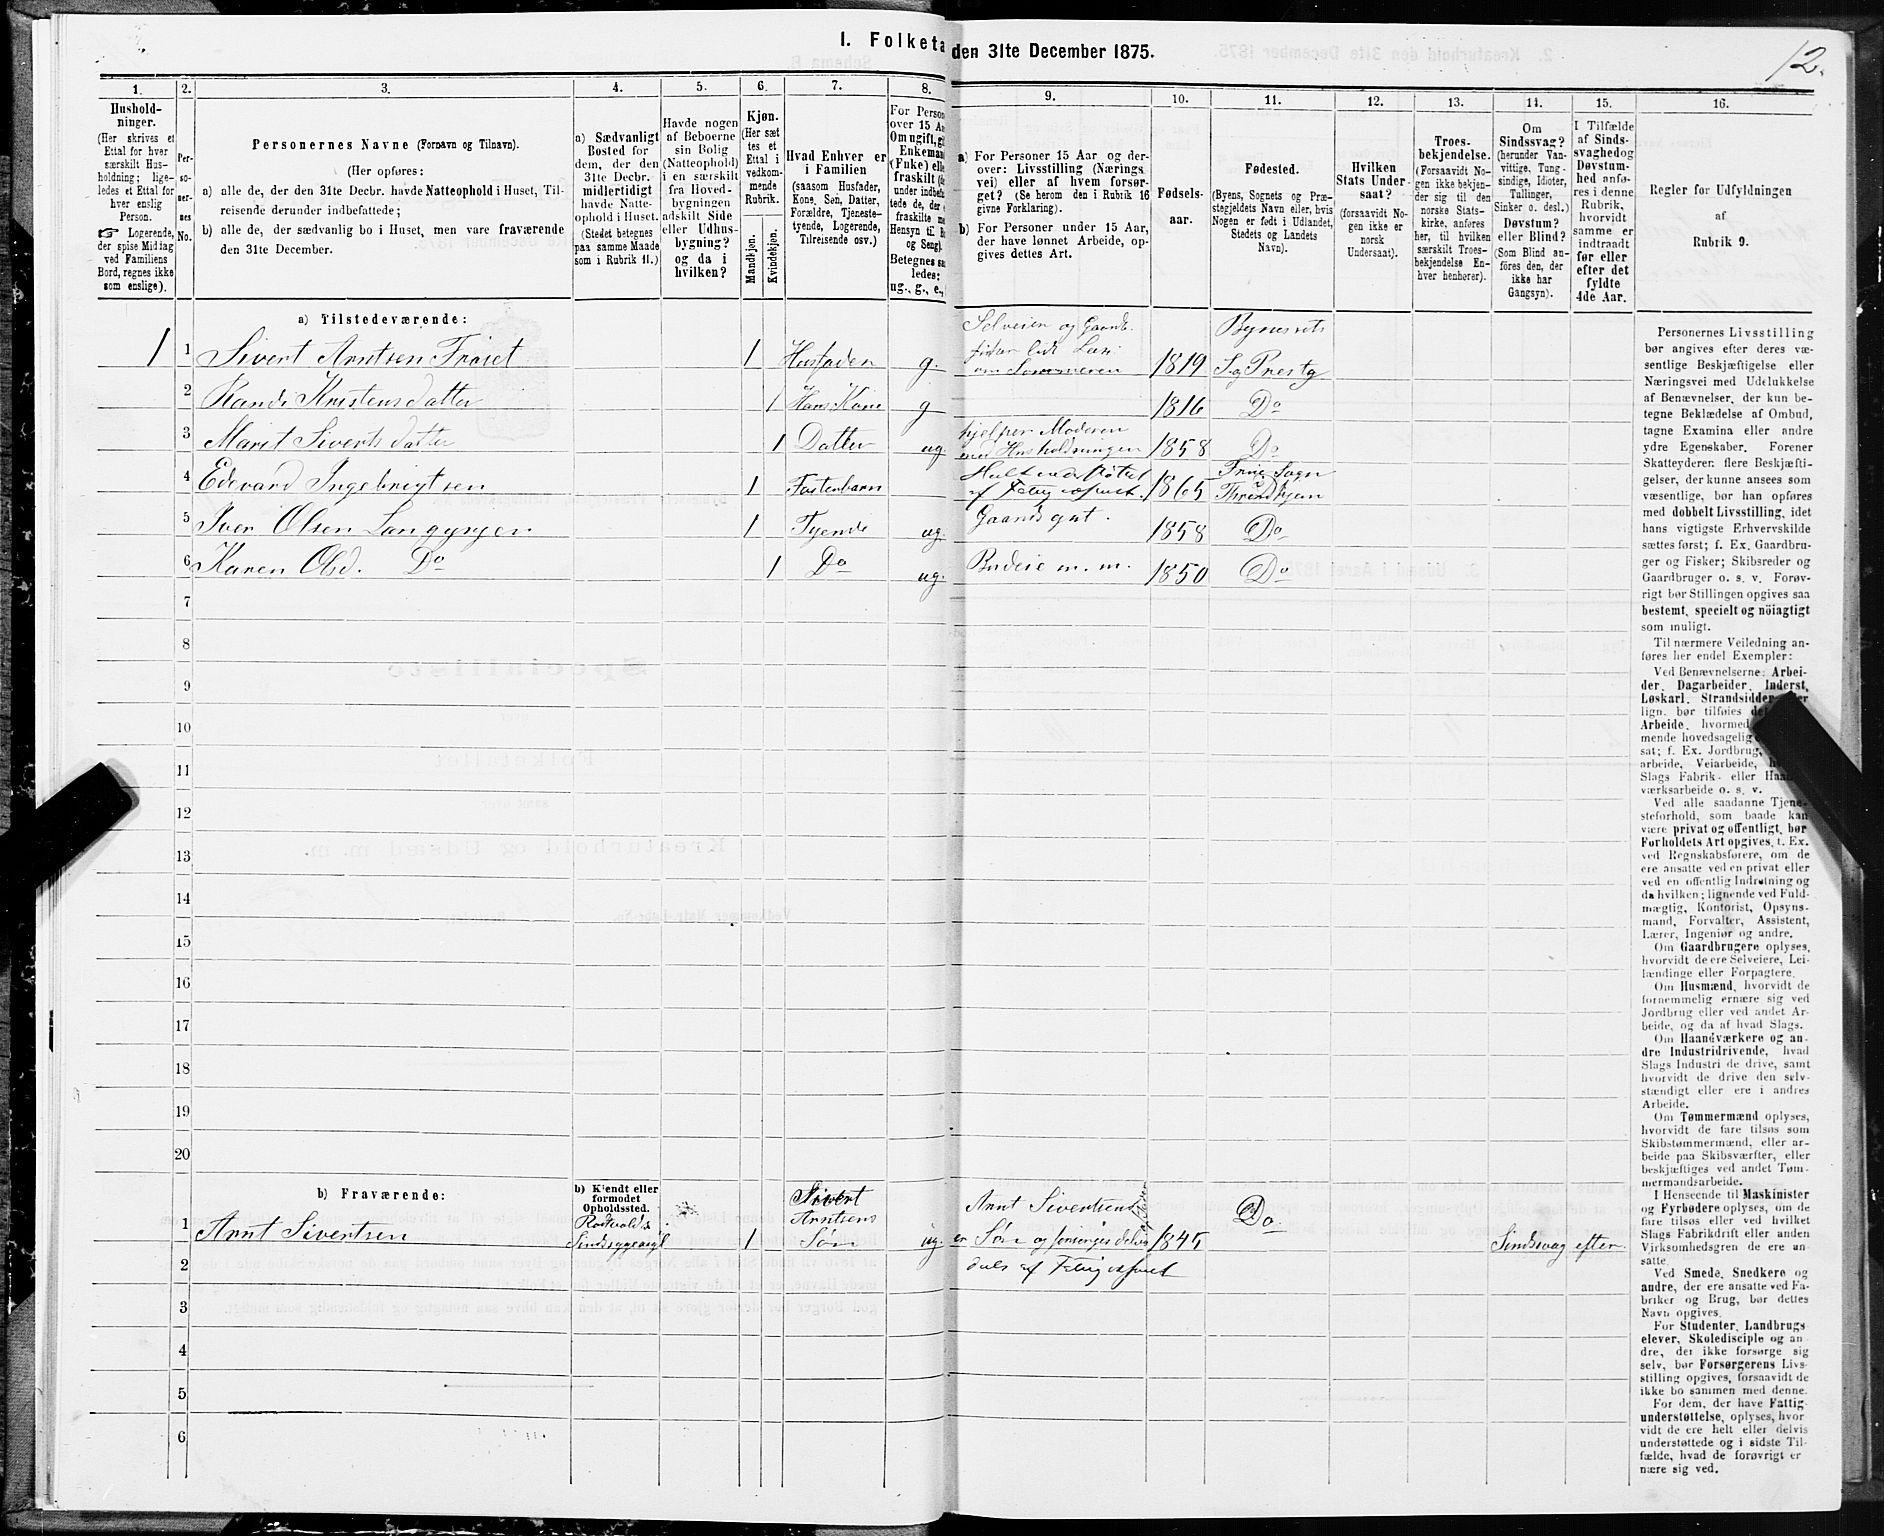 12.
I. Folketa
den 31te December 1875.
1.
2.
3.
4.
5.
6.
7.
8.
9.
10.
11.
12.
13.
14.
15.
16.
Hushold-
ninger.
(Her skrives et
Ettal for hver
særskilt Hus-
holdning; lige-
ledes et Ettal for
hver enslig
Person.
☞ Logerende,
der spise Middag
ved Familiens
Bord, regnes ikke
som enslige).
Per-
so-
ner-
nes
No.
Personernes Navne (Fornavn og Tilnavn).
(Her opføres:
a) alle de, der den 31te Decbr. havde Natteophold i Huset, Til-
reisende derunder indbefattede;
b) alle de, der sædvanlig bo i Huset, men vare fraværende
den 31te December.
a) Sædvanligt
Bosted for
dem, der den
31te Decbr.
midlertidigt
havde Natte-
ophold i Huset.
(Stedet betegnes
paa samme Maade
som i Rubrik 11.)
Havde nogen
af Beboerne
sin Bolig
(Natteophold)
i en særskilt
fra Hoved-
bygningen
adskilt Side
eller Udhus-
bygning?
og da i
hvilken?
Kjøn.
(Her sæt
tes et
Ettal i
vedkom-
mende
Rubrik.
Mandkjøn.
Kvindekjøn.
Hvad Enhver er
i Familien
(saasom Husfader,
Kone, Søn, Datter,
Forældre, Tjeneste-
tyende, Logerende,
Tilreisende osv.)
For Person
over 15 Aa
Om ugift, gi
Enkeman
(Fuke) elle
fraskilt (de
under indbefat
tede de, der e
fraskilte me
Hensyn til B
og Seng).
Betegnes saa
ledes:
ug., g., e.,
a) For Personer 15 Aar og der-
over: Livsstilling (Nærings
vei) eller af hvem forsør-
get? (Se herom den i Rubrik 16
givne Forklaring).
b) For Personer under 15 Aar,
der have lønnet Arbeide, op-
gives dettes Art.
Fødsels-
aar.
Fødested.
(Byens, Sognets og Præ-
stegjeldets Navn eller, hvis
Nogen er født i Udlandet,
Stedets og Landets
Navn).
Hvilken
Stats Under-
saat?
(forsaavidt No-
gen ikke er
norsk
Undersaat).
Troes-
bekjendelse.
(Forsaavidt No-
gen ikke bekjen-
der sig til den
norske Stats-
kirke, anføres
her, til hvilken
særskilt Troes-
bekjendelse En-
hver henhører).
Om
Sindssvag?
(herunder Van-
vittige, Tung-
sindige, Idioter,
Tullinger,
Sinker o. desl.)
Døvstum?
eller Blind?
(Som Blind an-
føres den, der
ikke har
Gangsyn).
I Tilfælde
af Sinds-
svaghed og
Døvstum-
hed anfø-
res i denne
Rubrik,
hvorvidt
samme er
indtraadt
før eller
efter det
fyldte
4de Aar.
Regler for Udfyldningen
af
Rubrik 9.
a) Tilstedeværende:
1 1 Sivert Arntsen Frøiet 1 Husfader g. Selveier og Gaardb. 1819 Bynesset
S og Prestg
om Sommeren
2 Kristensdatter 1 Hans Kone g 1816 Do
3 Marit Sivertsdatter 1 Datter ug. hjelper Moderen
med Husholdningen 1858 Do
4 Edevard Ingebrigtsen 1 Fosterbarn
af 1865 Frue Sogn
Throndhjem
5 Iver Olsen 1 Tyende ug. Gaardsgut. 1858 Do
6 Karen Olsd. Do 1 Do ug. Budeie m. m. 1850 Do
7
8
9
10
11
12
13
14
15
16
17
18
19
20
b) Fraværende:
b) Kjendt eller
formodet
Opholdssted.
1 Arnt Sivertsen Rotvolds
Sindssygeasyl 1 Sivert
Arntsens
Søn ug. Arnt Sivertsens
er Søn og forsørges delvis 1845 Do Sindsvag efter
dels af
2
3
4
5
6
Personernes Livsstilling
bør angives efter deres væ-
sentlige Beskjæftigelse eller
Næringsvei med Udelukkelse
af Benævnelser, der kun be-
tegne Beklædelse af Ombud,
tagne Examina eller andre
ydre Egenskaber. Forener
Skatteyderen flere Beskjæfti-
gelser, der kunne ansees som
væsentlige, bør han opføres
med dobbelt Livsstilling, idet
hans vigtigste Erhvervskilde
sættes først; f. Ex. Gaardbru-
ger og Fisker; Skibsreder og
Gaardbruger o. s. v. Forøv-
rigt bør Stillingen opgives saa
bestemt, specielt og nöiagtigt
som muligt.
Til nærmere Veiledning an-
føres her endel Exempler:
Ved Benævnelserne: Arbei-
der, Dagarbeider, Inderst,
Løskarl, Strandsidder
lign. bør tilføies
Arbeide, hvormed
mende hovedsagelig
sat; f. Ex. Jordbrug,
arbeide, Veiarbeide,
Slags Fabrik- eller
værksarbeide o. s. v.
Ved alle saadanne Tjene-
steforhold, som baade kan
være privat og offentligt, bør
Forholdets Art opgives, f. Ex.
ved Regnskabsførere, om de
ere ansatte ved en privat eller
ved en offentlig Indretning og
da hvilken; lignende ved Fuld-
mægtig, Kontorist, Opsyns-
mand, Forvalter, Assistent,
Lærer, Ingeniør og andre.
Om Gaardbrugere oplyses,
hvorvidt de ere Selveiere, Lei-
lændinge eller Forpagtere.
Om Husmænd, hvorvidt de
fornemmelig ernære sig ved
Jordbrug eller ved andet Ar-
beide, og da af hvad Slags.
Om Haandværkere og an-
dre Industridrivende, hvad
Slags Industri de drive, samt
hvorvidt de drive den selv-
stændigt eller ere i andres
Arbeide.
Om Tømmermænd oplyses,
hvorvidt de fare tilsøs som
Skibstømmermænd, eller ar-
beide paa Skibsværfter, eller
beskjæftiges ved andet Tøm-
mermandsarbeide.
I Henseende til Maskinister
og Fyrbødere oplyses, om de
fare tilsøs eller ved hvilket
Slags Fabrikdrift eller anden
Virksomhedsgren de ere an-
satte.
Ved Smede, Snedkere og
andre, der ere ansatte ved Fa-
briker og Brug, bør dettes
Navn opgives.
For Studenter, Landbrugs
elever, Skoledisciple og an-
dre, der ikke forsørge sig
selv, bør Forsørgerens Livs-
stilling opgives, forsaavidt de
ikke bo sammen med denne.
For dem, der have Fattig-
understøttelse, oplyses, hvor
vidt de ere helt eller delvis
understøttede og i sidste Til-
fælde, hvad de forøvrigt er
nære sig ved.